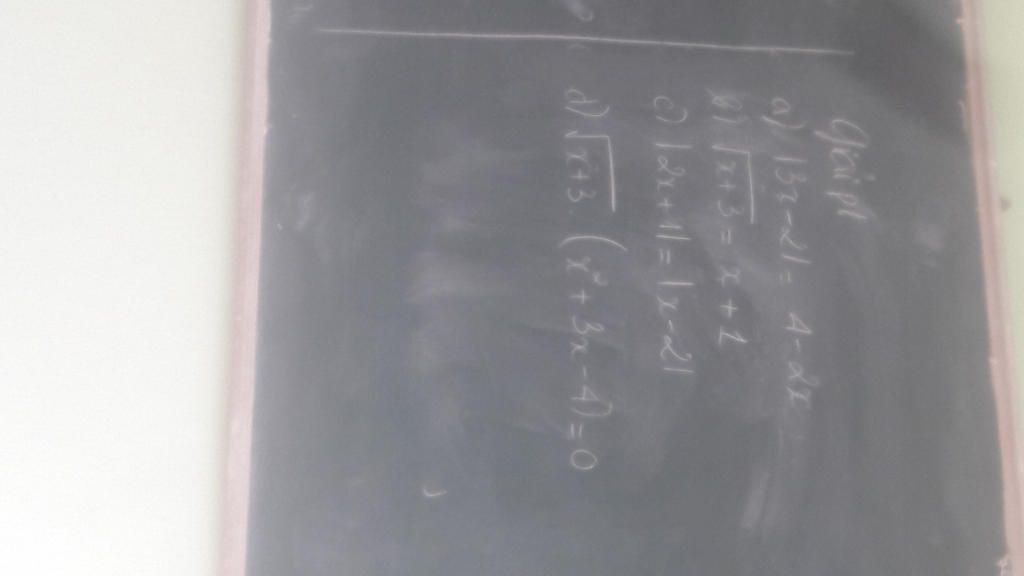 Giải pt
a) |3x-2| = 4-2x
b) √x+3 = x+1
c) |2x+1| = |x-2|
d) √x+3 . (x²+3x-4) = 0